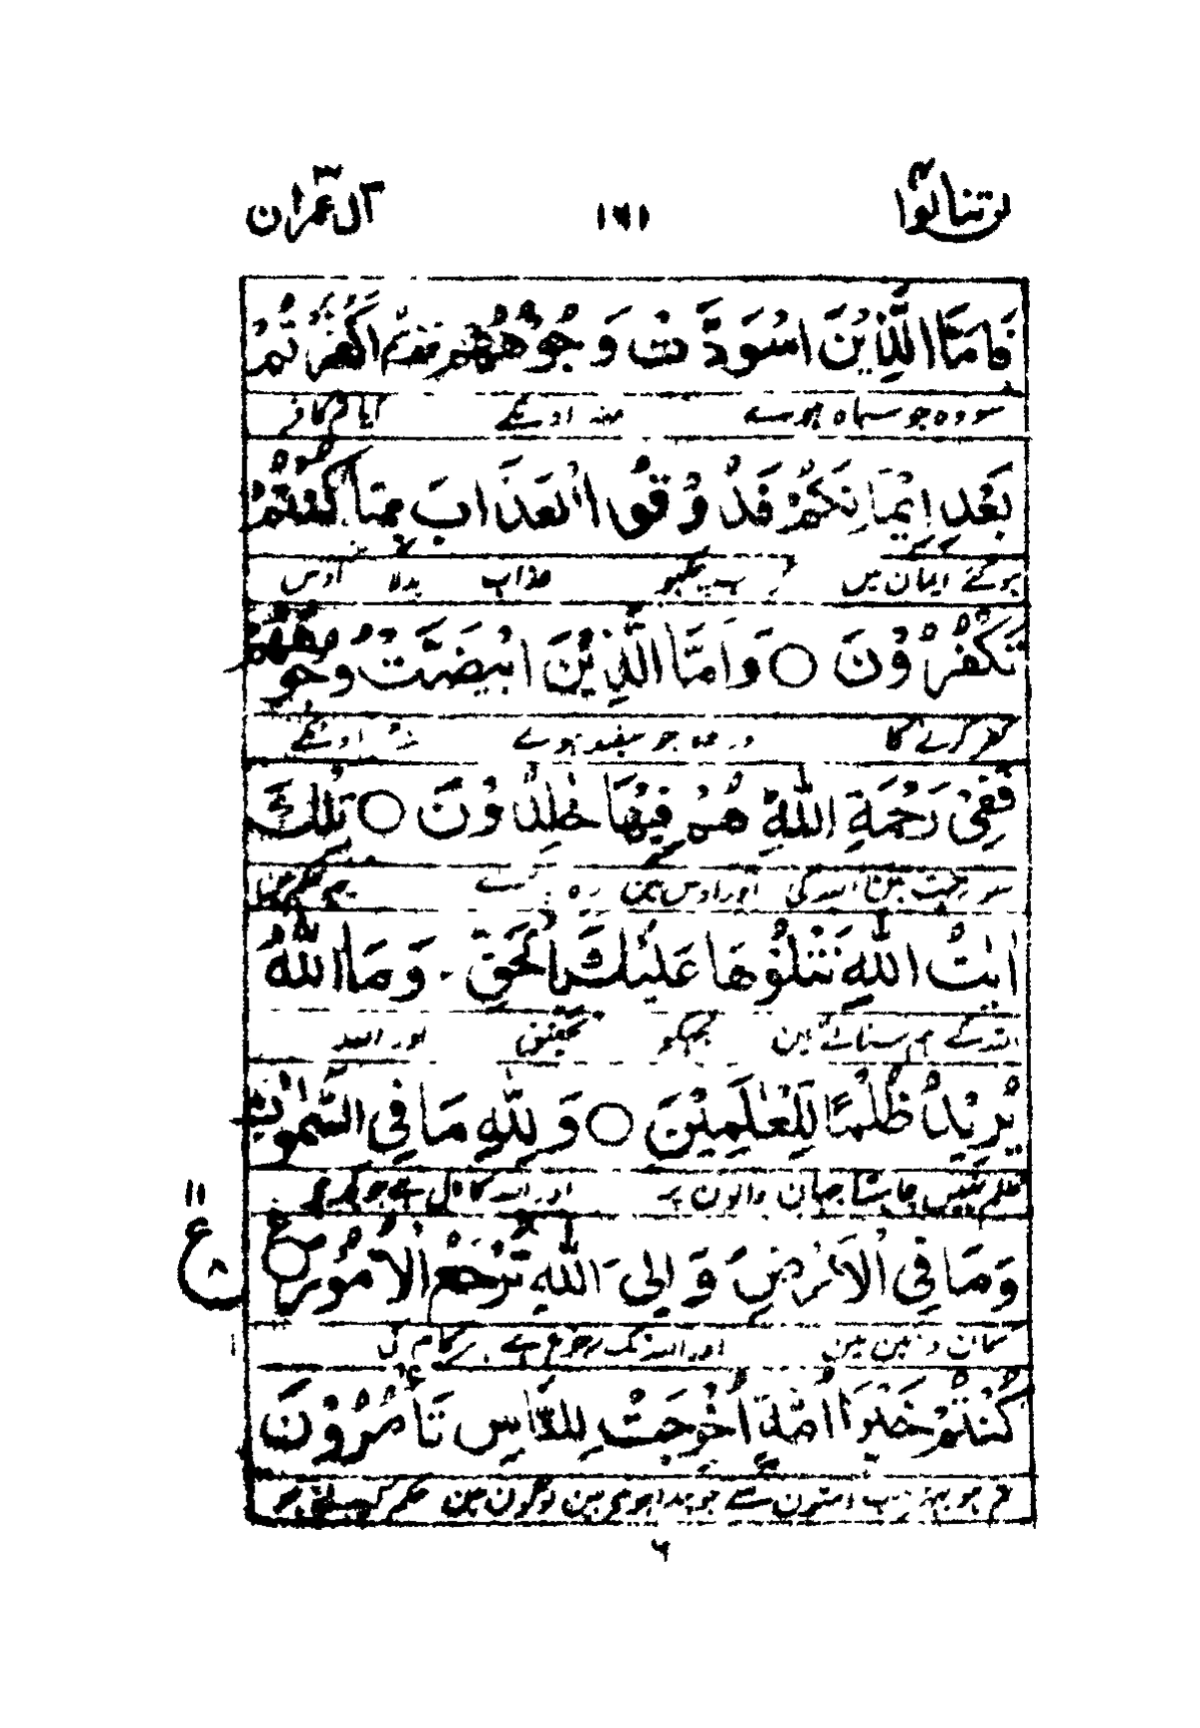 لن تنالوا ٤ ١٦١ آل عمران ٣
فَاَمَّا الَّذِيْنَ اسْوَدَّتْ وُجُوْهُهُمْ اَكَفَرْتُمْ
سو وہ جو سیاہ ہوے منہ اونکے آیا تم کافر
بَعْدَ اِيْمَانِكُمْ فَذُوْقُوا الْعَذَابَ بِمَا كُنْتُمْ
ہو گئے ایمان میں اب چکھو عذاب بدلا اوس
تَكْفُرُوْنَ ○ وَاَمَّا الَّذِيْنَ ابْيَضَّتْ وُجُوْهُهُمْ
کفر کرنے کا اور وہ جو سفید ہوے منہ اونکے
فَفِيْ رَحْمَةِ اللّٰهِ هُمْ فِيْهَا خٰلِدُوْنَ ○ تِلْكَ
سو رحمت میں اللہ کی اور اوس میں رہ یہ حکم ہیں
اٰيٰتُ اللّٰهِ نَتْلُوْهَا عَلَيْكَ بِالْحَقِّ وَمَا اللّٰهُ
اللہ کے ہم سناتے ہیں تجھکو تحقیق اور اللہ
يُرِيْدُ ظُلْمًا لِّلْعٰلَمِيْنَ ○ وَلِلّٰهِ مَا فِي السَّمٰوٰتِ
ظلم نہیں چاہتا جہان والوں پر اور اللہ کا مال ہے جو کچھ
وَمَا فِي الْاَرْضِ وَاِلَى اللّٰهِ تُرْجَعُ الْاُمُوْرُ ○ ع
١١
ع
٨
آسمان و زمین میں اور اللہ تک رجوع ہے ہر کام کی
كُنْتُمْ خَيْرَ اُمَّةٍ اُخْرِجَتْ لِلنَّاسِ تَاْمُرُوْنَ
تم ہو بہتر سب امتوں سے جو پیدا ہوی ہیں لوگوں میں حکم کرتے ہو
٦